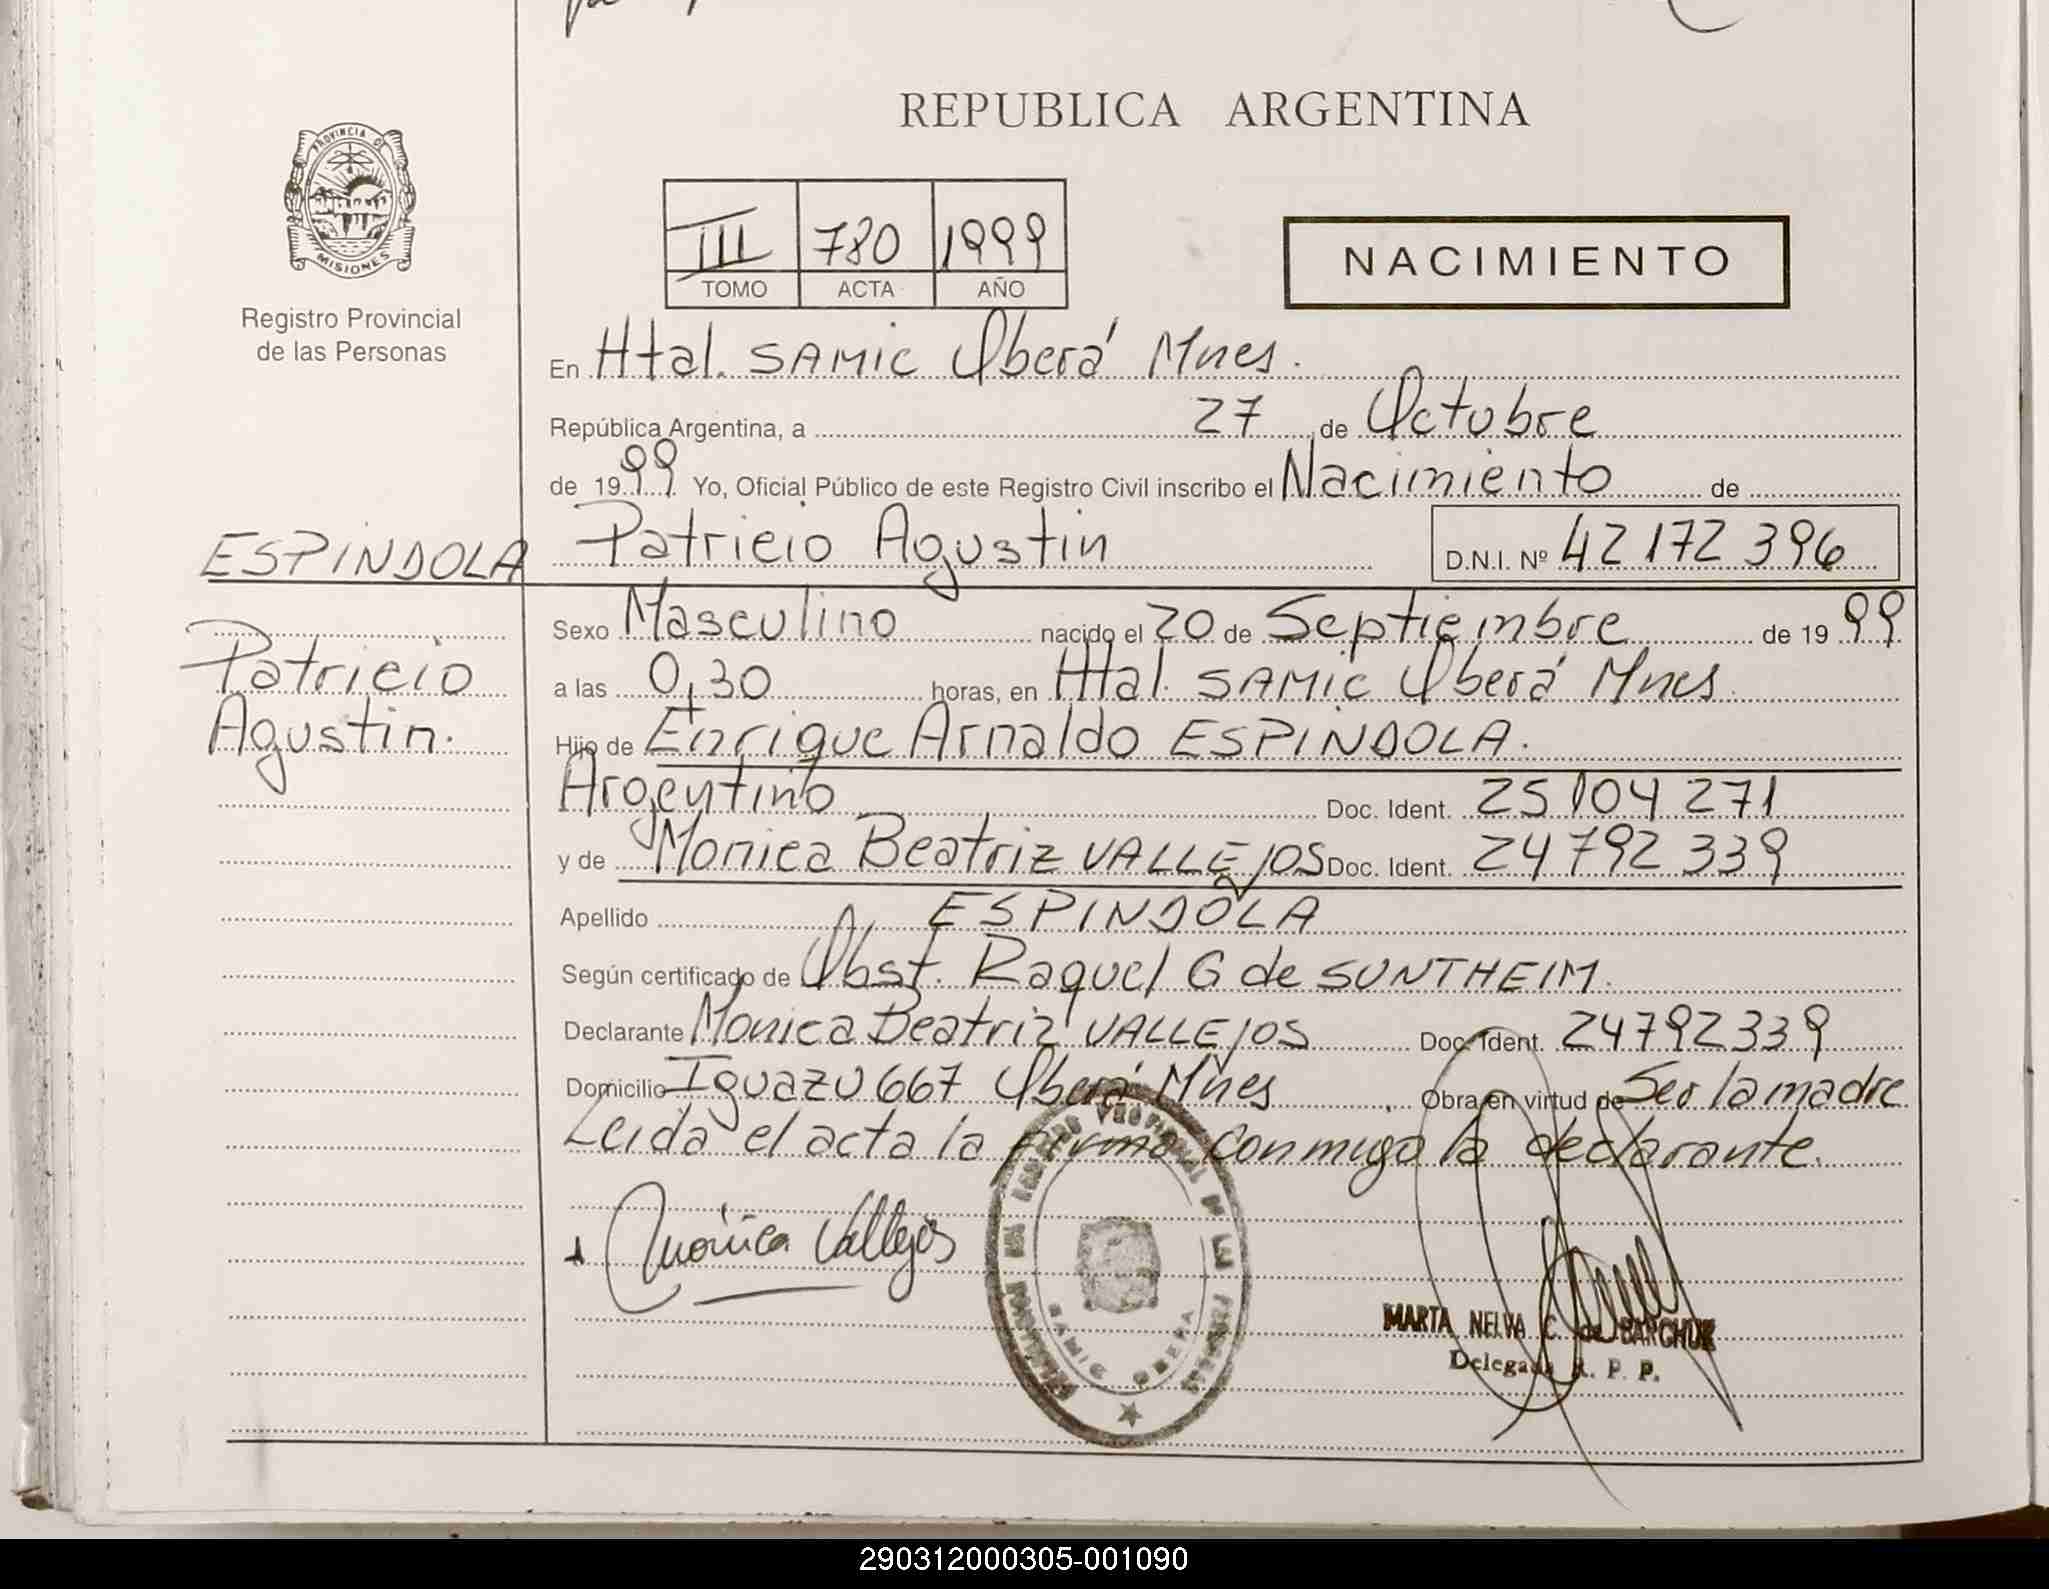 REPUBLICA ARGENTINA
PROVINCIA DE
MISIONES
Registro Provincial
de las Personas
III 780 1999
TOMO ACTA AÑO
NACIMIENTO
En Htal. SAMIC Oberá Mnes.
República Argentina, a 27 de Octubre
de 1999 Yo, Oficial Público de este Registro Civil inscribo el Nacimiento de
ESPINDOLA Patricio Agustin D.N.I. Nº 42 172 396
Sexo Masculino nacido el 20 de Septiembre de 1999
Patricio
a las 0,30 horas, en Htal. SAMIC Oberá Mnes.
Agustin.
Hijo de Enrique Arnaldo ESPINDOLA.
Argentino Doc. Ident. 25 104 271
y de Monica Beatriz VALLEJOS Doc. Ident. 24 792 339
Apellido ESPINDOLA
Según certificado de Obst. Raquel G de SUNTHEIM.
Declarante Monica Beatriz VALLEJOS Doc. Ident. 24792339
Domicilio Iguazu 667 Oberá Mnes Obra en virtud de Ser la madre
Leida el acta la firma conmigo la declarante.
Mónica Vallejos
SAMIC OBERA
MARTA NELVA C. de
Delegada R. P. P.
290312000305-001090